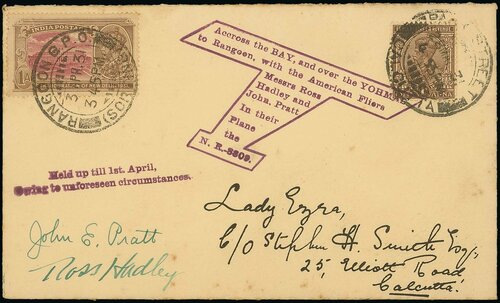 INDIA POSTAGE
RANGOON G.P.O.
Accross the BAY, and over the YOHMAS
to Rangoon, with the American Fliers
Messrs Ross
Hadley and
John. Pratt
In their
Plane
the
N. R.-3809.
Held up till 1st. April,
Owing to unforeseen circumstances.
John E. Pratt
Ross Hadley
Lady Ezra,
C/O Stephen H. Smith Esq,
25, Elliott Road
Calcutta.